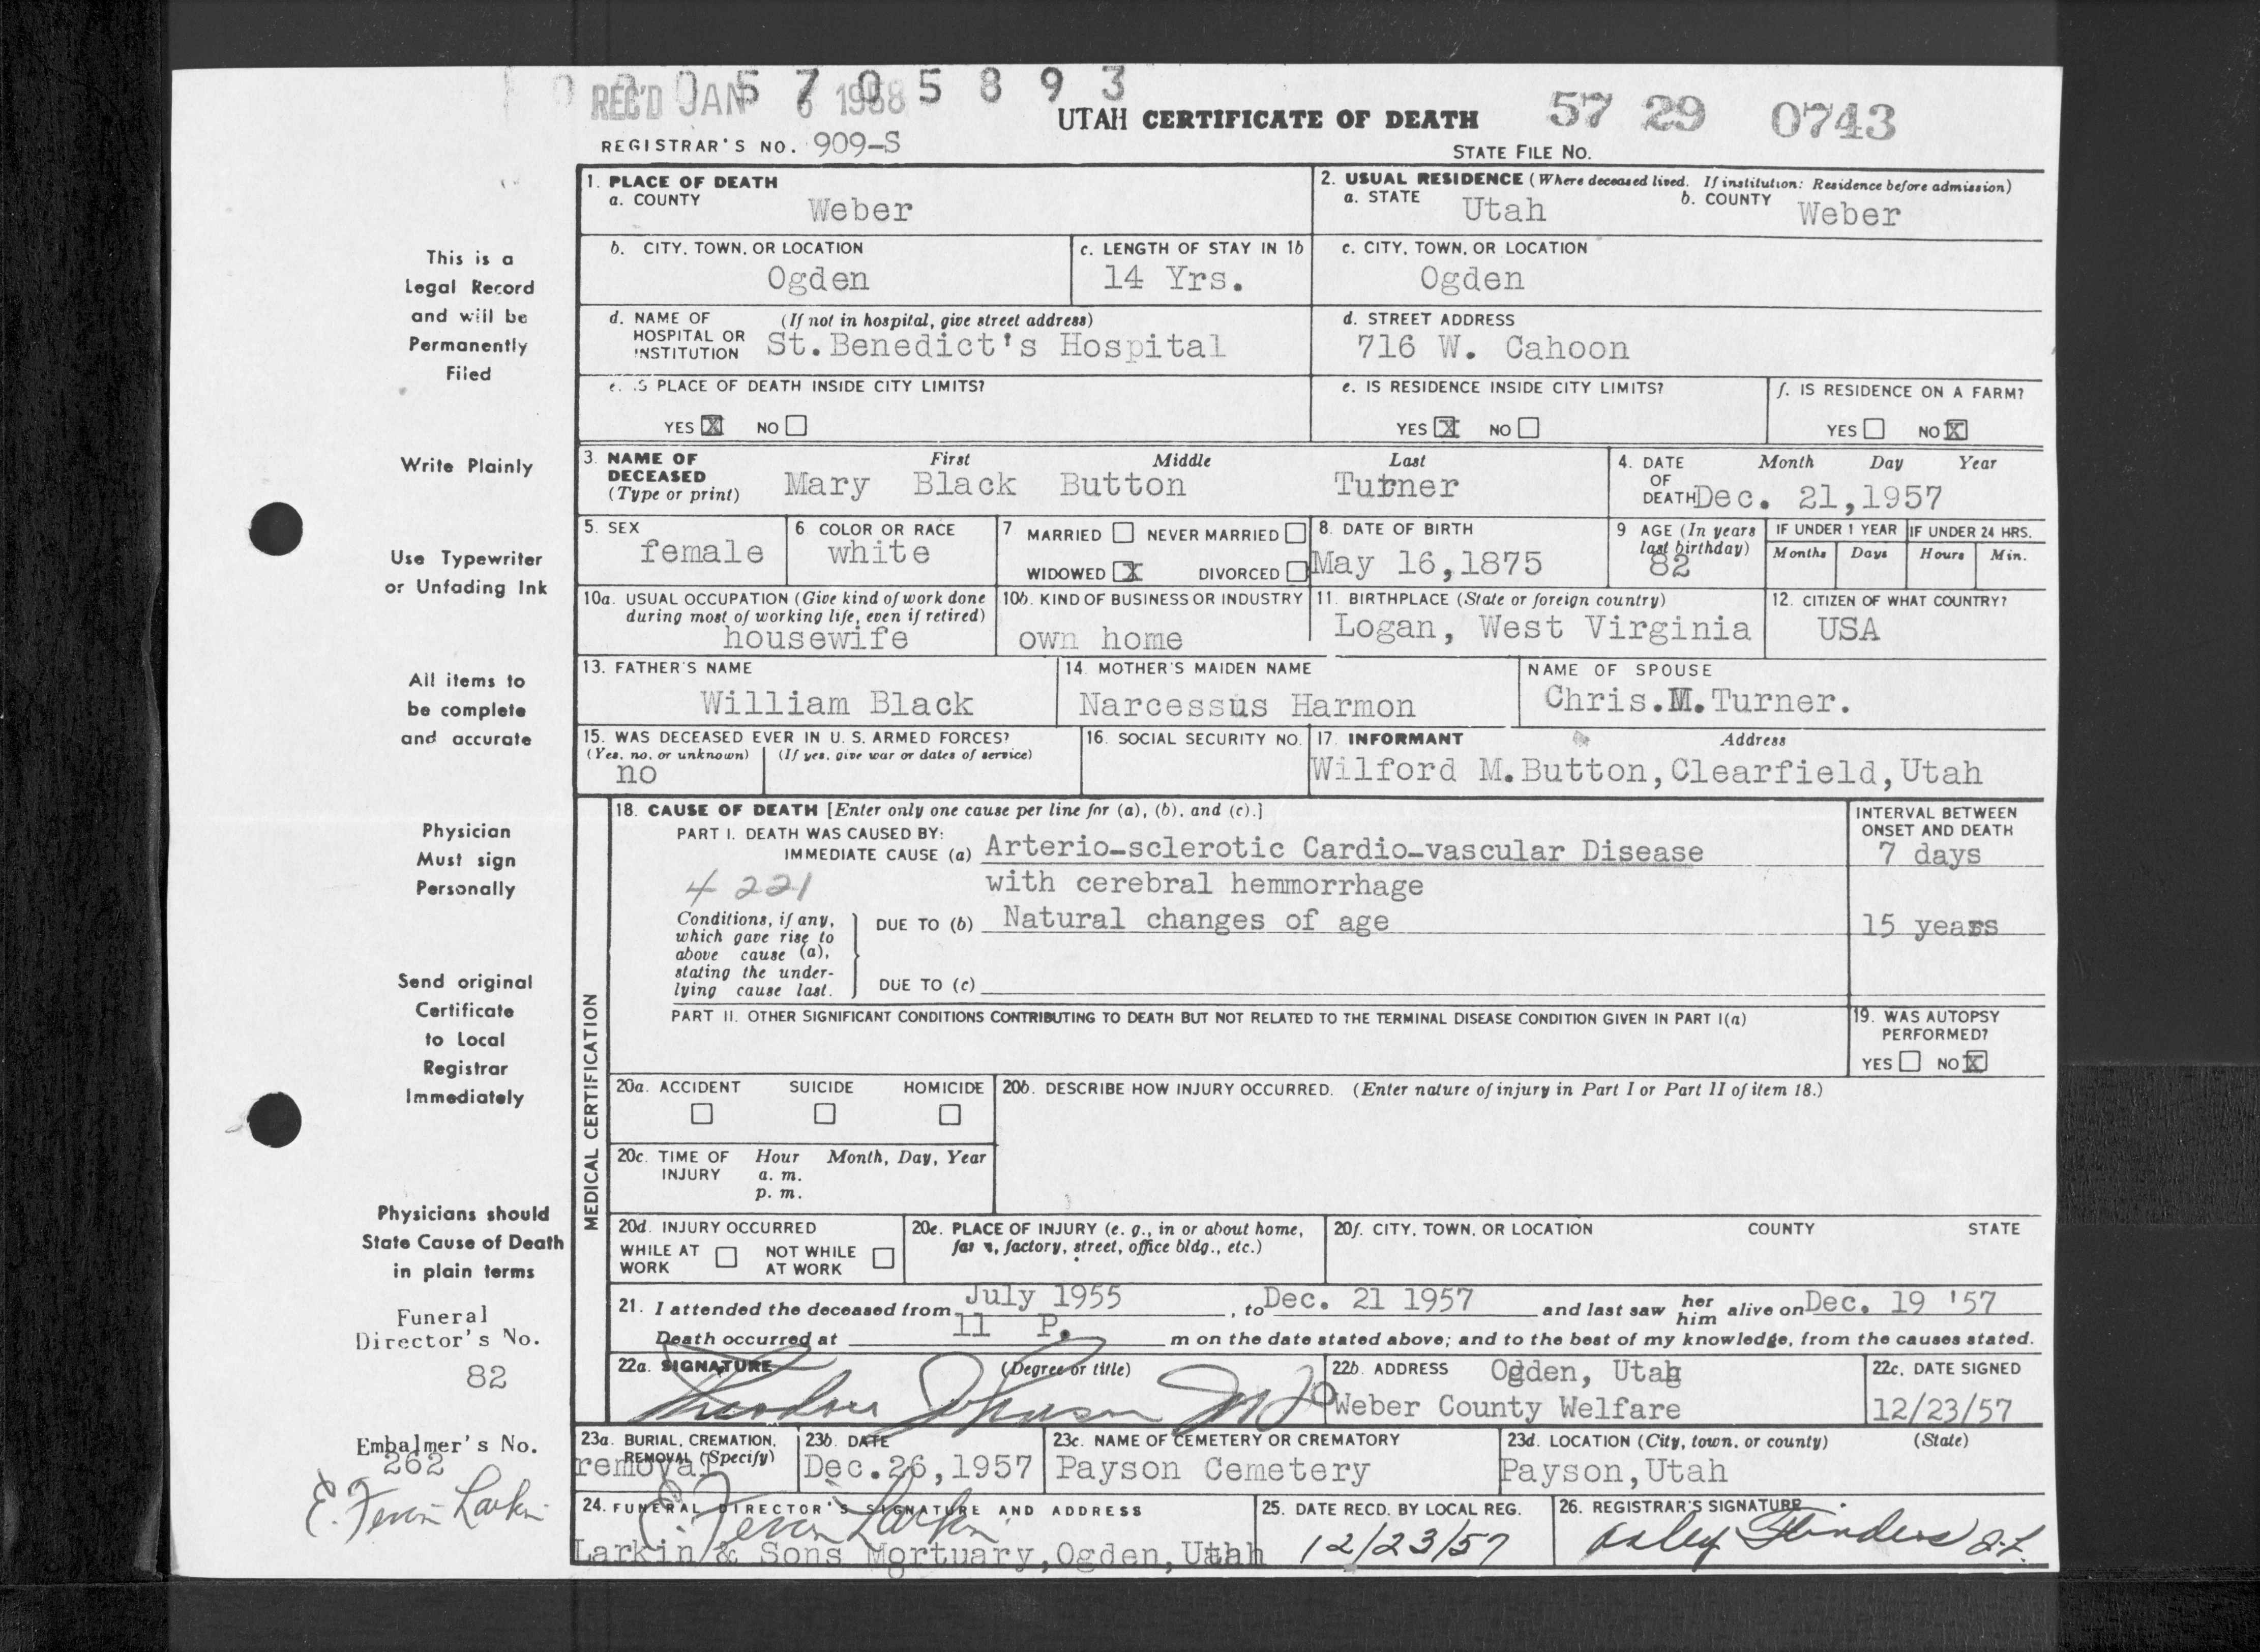 0 5 7 0 5 8 9 3
REC'D JAN 6 1958
UTAH CERTIFICATE OF DEATH
57 29 0743
REGISTRAR'S NO. 909-S
STATE FILE NO.
1. PLACE OF DEATH
a. COUNTY Weber
2. USUAL RESIDENCE (Where deceased lived. If institution: Residence before admission)
a. STATE Utah b. COUNTY Weber
b. CITY, TOWN, OR LOCATION
Ogden
c. LENGTH OF STAY IN 1b
14 Yrs.
c. CITY, TOWN, OR LOCATION
Ogden
d. NAME OF HOSPITAL OR INSTITUTION (If not in hospital, give street address)
St.Benedict's Hospital
d. STREET ADDRESS
716 W. Cahoon
e. IS PLACE OF DEATH INSIDE CITY LIMITS?
YES X NO
e. IS RESIDENCE INSIDE CITY LIMITS?
YES X NO
f. IS RESIDENCE ON A FARM?
YES NO X
3. NAME OF DECEASED (Type or print) First Middle Last
Mary Black Button Turner
4. DATE OF DEATH Month Day Year
Dec. 21,1957
5. SEX
female
6. COLOR OR RACE
white
7 MARRIED NEVER MARRIED
WIDOWED X DIVORCED
8. DATE OF BIRTH
May 16,1875
9 AGE (In years last birthday)
82
IF UNDER 1 YEAR
Months Days
IF UNDER 24 HRS.
Hours Min.
10a. USUAL OCCUPATION (Give kind of work done during most of working life, even if retired)
housewife
10b. KIND OF BUSINESS OR INDUSTRY
own home
11. BIRTHPLACE (State or foreign country)
Logan, West Virginia
12. CITIZEN OF WHAT COUNTRY?
USA
13. FATHER'S NAME
William Black
14. MOTHER'S MAIDEN NAME
Narcessus Harmon
NAME OF SPOUSE
Chris.M.Turner.
15. WAS DECEASED EVER IN U.S. ARMED FORCES?
(Yes, no, or unknown) (If yes, give war or dates of service)
no
16. SOCIAL SECURITY NO.
17. INFORMANT Address
Wilford M.Button,Clearfield,Utah
MEDICAL CERTIFICATION
18. CAUSE OF DEATH [Enter only one cause per line for (a), (b), and (c).]
INTERVAL BETWEEN ONSET AND DEATH
PART I. DEATH WAS CAUSED BY:
IMMEDIATE CAUSE (a) Arterio-sclerotic Cardio-vascular Disease 7 days
4 221 with cerebral hemmorrhage
Conditions, if any, which gave rise to above cause (a), stating the underlying cause last.
DUE TO (b) Natural changes of age 15 years
DUE TO (c)
PART II. OTHER SIGNIFICANT CONDITIONS CONTRIBUTING TO DEATH BUT NOT RELATED TO THE TERMINAL DISEASE CONDITION GIVEN IN PART I(a)
19. WAS AUTOPSY PERFORMED?
YES NO X
20a. ACCIDENT SUICIDE HOMICIDE
20b. DESCRIBE HOW INJURY OCCURRED. (Enter nature of injury in Part I or Part II of item 18.)
20c. TIME OF INJURY Hour Month, Day, Year
a. m.
p. m.
20d. INJURY OCCURRED
WHILE AT WORK NOT WHILE AT WORK
20e. PLACE OF INJURY (e. g., in or about home, farm, factory, street, office bldg., etc.)
20f. CITY, TOWN, OR LOCATION COUNTY STATE
21. I attended the deceased from July 1955, to Dec. 21 1957 and last saw her him alive on Dec. 19 '57
Death occurred at 11 P. m on the date stated above; and to the best of my knowledge, from the causes stated.
22a. SIGNATURE (Degree or title)
Theodore Johnson MD
22b. ADDRESS Ogden, Utah
Weber County Welfare
22c. DATE SIGNED
12/23/57
23a. BURIAL, CREMATION, REMOVAL (Specify)
removal
23b. DATE
Dec.26,1957
23c. NAME OF CEMETERY OR CREMATORY
Payson Cemetery
23d. LOCATION (City, town, or county) (State)
Payson,Utah
24. FUNERAL DIRECTOR'S SIGNATURE AND ADDRESS
Larkin & Sons Mortuary,Ogden,Utah
25. DATE RECD. BY LOCAL REG.
12/23/57
26. REGISTRAR'S SIGNATURE
This is a
Legal Record
and will be
Permanently
Filed
Write Plainly
Use Typewriter
or Unfading Ink
All items to
be complete
and accurate
Physician
Must sign
Personally
Send original
Certificate
to Local
Registrar
Immediately
Physicians should
State Cause of Death
in plain terms
Funeral
Director's No.
82
Embalmer's No.
262